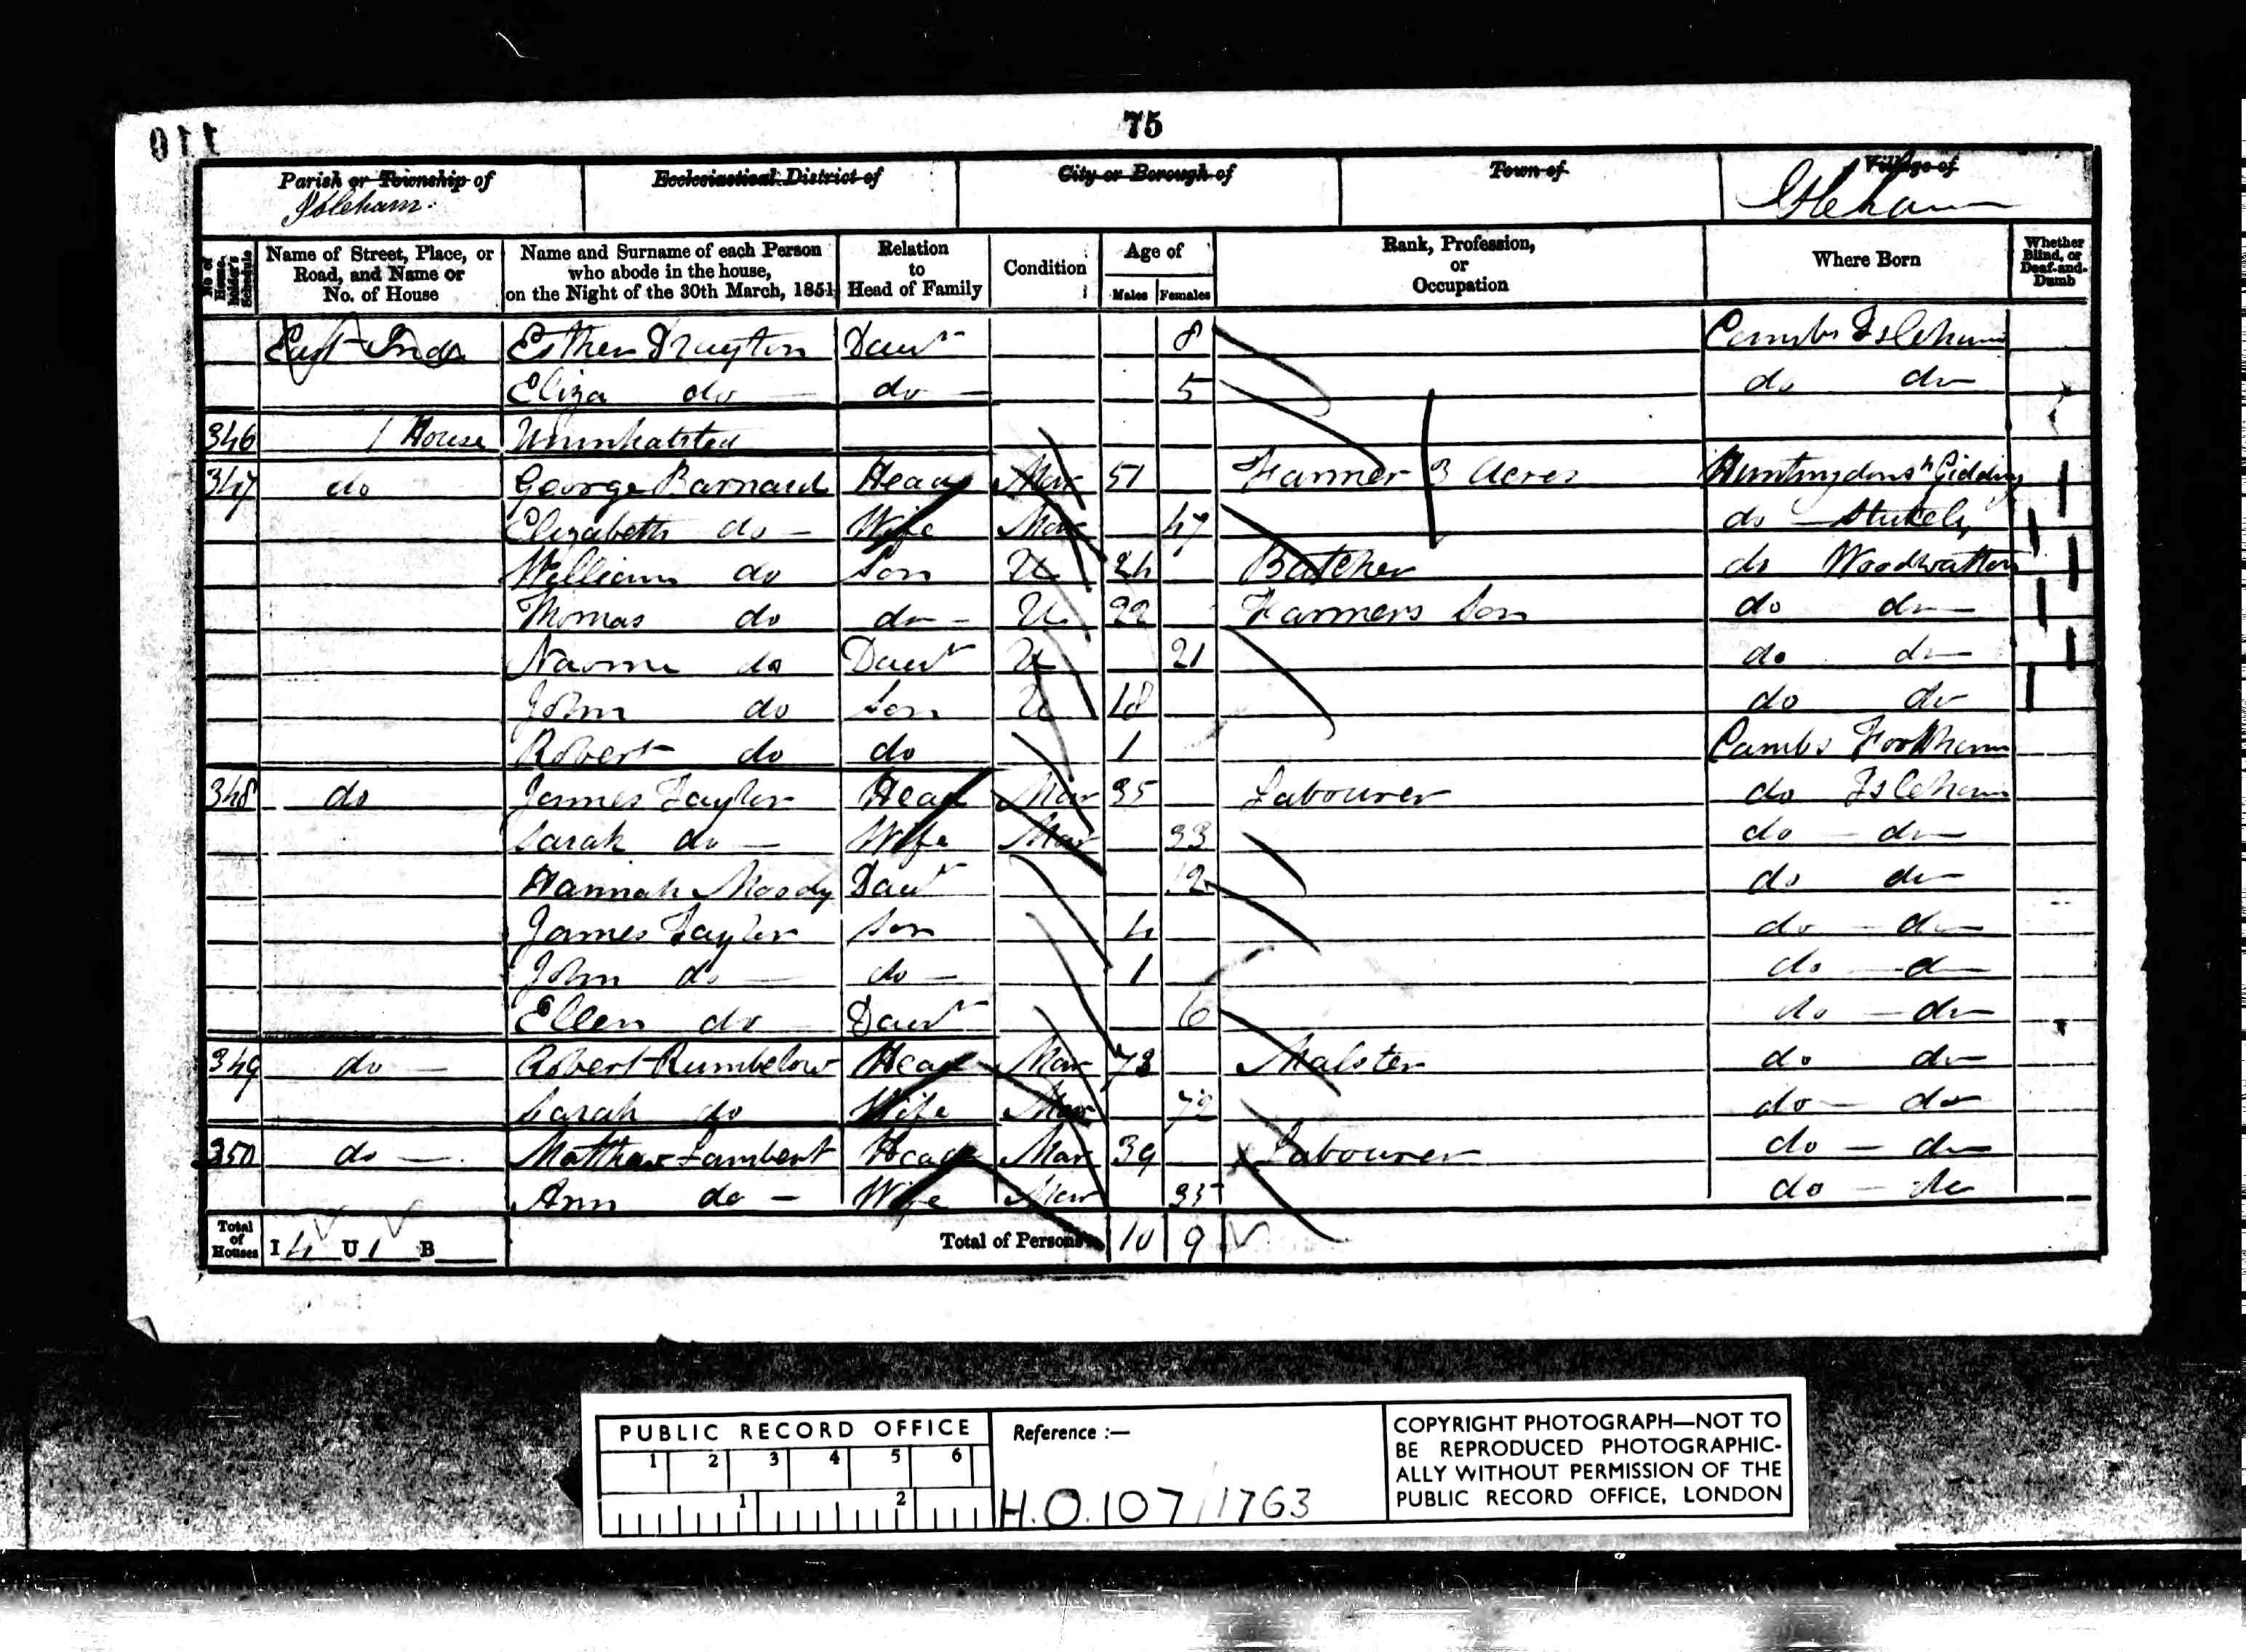 75
110
Parish or Township of Isleham. Ecclesiastical District of City or Borough of Town of Village of Isleham
No. of House-holder's Schedule Name of Street, Place, or Road, and Name or No. of House Name and Surname of each Person who abode in the house, on the Night of the 30th March, 1851 Relation to Head of Family Condition Age of Males Females Rank, Profession, or Occupation Where Born Whether Blind, or Deaf-and-Dumb
East End Esther Drayton Daur 8 Cambs Isleham
Eliza do do 5 do do
346 1 House Uninhabited
347 do George Barnard Head Mar 51 Farmer 3 Acres Huntingdonsh Gidding
Elizabeth do Wife Mar 47 do Stukely
William do Son U 24 Butcher do Woodwalton
Thomas do do U 22 Farmers Son do do
Naomi do Daur U 21 do do
John do Son U 18 do do
Robert do do 1 Cambs Fordham
348 do James Taylor Head Mar 35 Labourer do Isleham
Sarah do Wife Mar 33 do do
Hannah Moody Daur 12 do do
James Taylor Son 4 do do
John do do 1 do do
Ellen do Daur 6 do do
349 do Robert Rumbelow Head Mar 73 Malster do do
Sarah do Wife Mar 72 do do
350 do Matthew Lambert Head Mar 39 Labourer do do
Ann do Wife Mar 35 do do
Total of Houses I 4 U 1 B Total of Persons 10 9
PUBLIC RECORD OFFICE
1 2 3 4 5 6
1 2
Reference :—
H.O. 107/1763
COPYRIGHT PHOTOGRAPH—NOT TO
BE REPRODUCED PHOTOGRAPHIC-
ALLY WITHOUT PERMISSION OF THE
PUBLIC RECORD OFFICE, LONDON